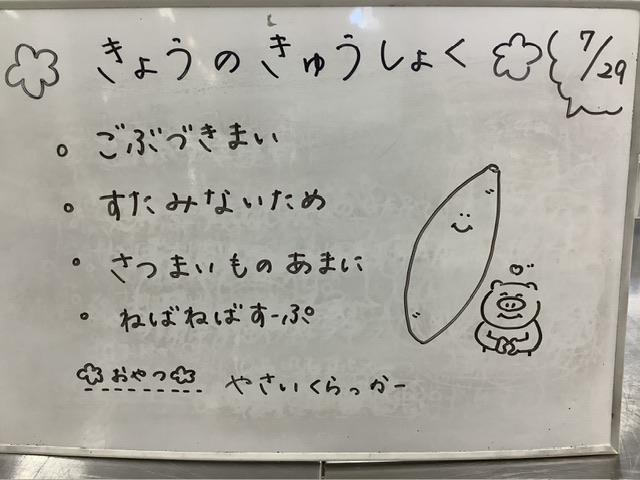 きょうのきゅうしょく
7/29
。ごぶづきまい
。すたみないため
。さつまいものあまに
。ねばねばすーぷ
おやつ やさいくらっかー